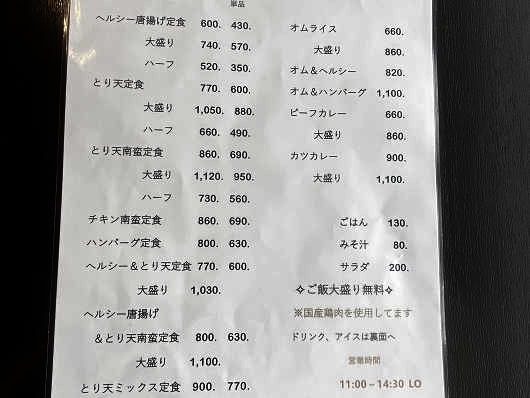 単品
ヘルシー唐揚げ定食 600. 430.
大盛り 740. 570.
ハーフ 520. 350.
とり天定食 770. 600.
大盛り 1,050. 880.
ハーフ 660. 490.
とり天南蛮定食 860. 690.
大盛り 1,120. 950.
ハーフ 730. 560.
チキン南蛮定食 860. 690.
ハンバーグ定食 800. 630.
ヘルシー＆とり天定食 770. 600.
大盛り 1,030.
ヘルシー唐揚げ
＆とり天南蛮定食 800. 630.
大盛り 1,100.
とり天ミックス定食 900. 770.
オムライス 660.
大盛り 860.
オム＆ヘルシー 820.
オム＆ハンバーグ 1,100.
ビーフカレー 660.
大盛り 860.
カツカレー 900.
大盛り 1,100.
ごはん 130.
みそ汁 80.
サラダ 200.
✧ご飯大盛り無料✧
※国産鶏肉を使用してます
ドリンク、アイスは裏面へ
営業時間
11:00－14:30 LO